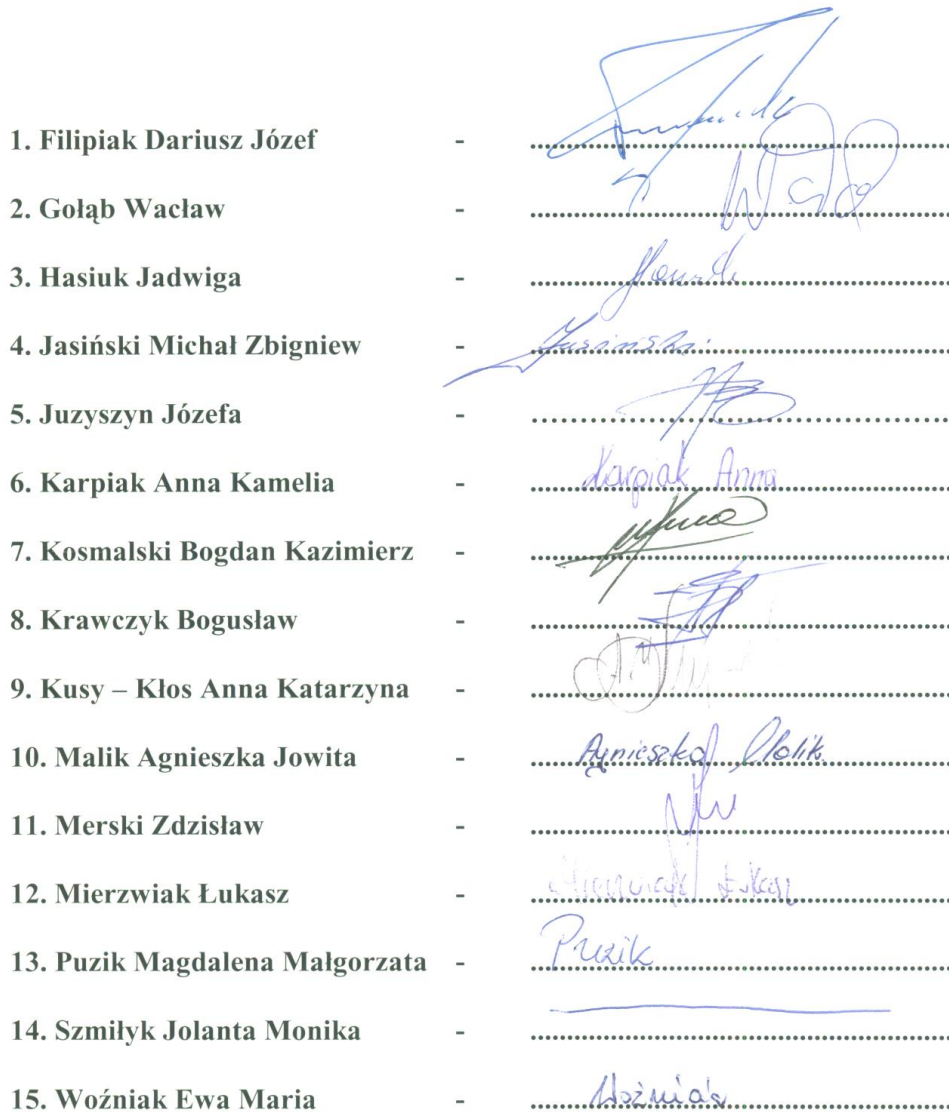 1. Filipiak Dariusz Józef -
2. Gołąb Wacław -
3. Hasiuk Jadwiga -
4. Jasiński Michał Zbigniew - Jasiński
5. Juzyszyn Józefa -
6. Karpiak Anna Kamelia - Karpiak Anna
7. Kosmalski Bogdan Kazimierz -
8. Krawczyk Bogusław -
9. Kusy – Kłos Anna Katarzyna -
10. Malik Agnieszka Jowita - Agnieszka Malik
11. Merski Zdzisław -
12. Mierzwiak Łukasz - Mierzwiak Łukasz
13. Puzik Magdalena Małgorzata - Puzik
14. Szmiłyk Jolanta Monika -
15. Woźniak Ewa Maria - Woźniak